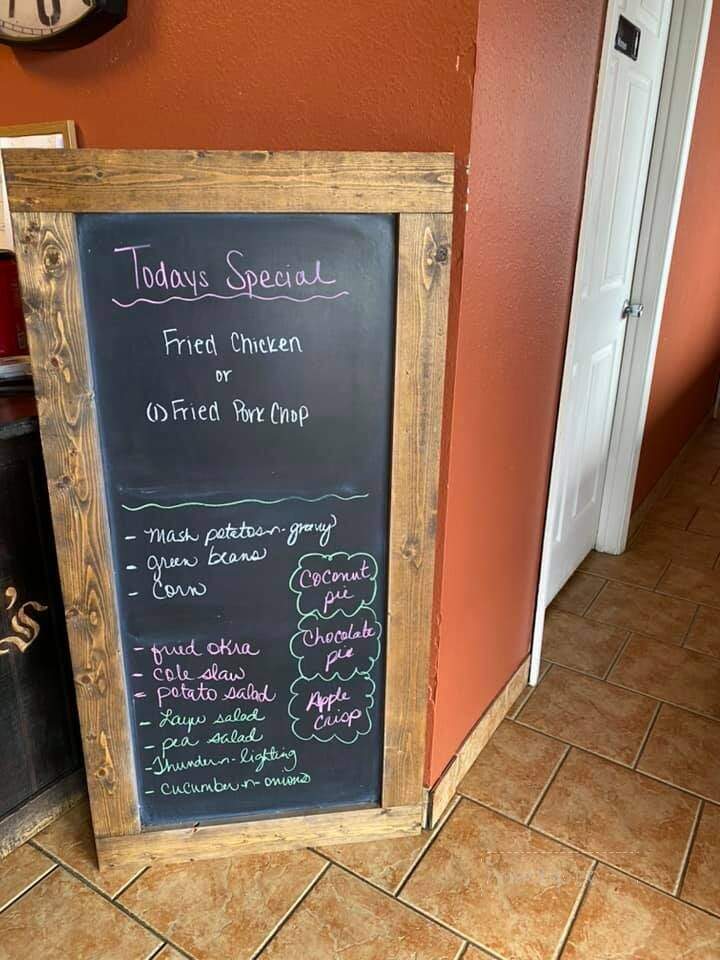 Todays Special
Fried Chicken
or
(1) Fried Pork Chop
- Mash potatos-n-gravy
- green beans
- Corn
- fried okra
- Cole slaw
- potato salad
- Layer salad
- pea salad
- Thunder-n-lighting
- Cucumber-n-onions
Coconut
pie
Chocolate
pie
Apple
Crisp
's